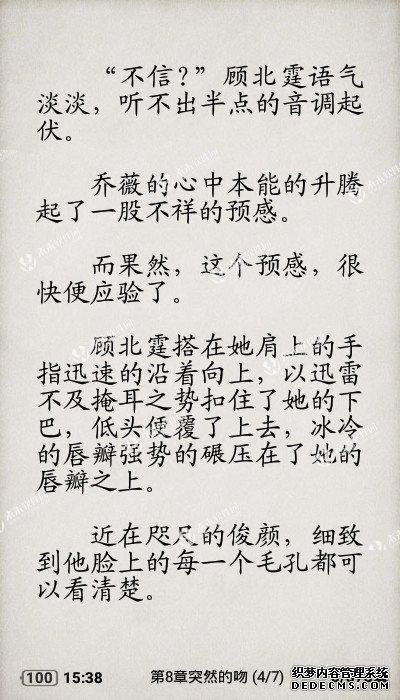 “不信？”顾北霆语气
淡淡，听不出半点的音调起
伏。
乔薇的心中本能的升腾
起了一股不祥的预感。
而果然，这个预感，很
快便应验了。
顾北霆搭在她肩上的手
指迅速的沿着向上，以迅雷
不及掩耳之势扣住了她的下
巴，低头便覆了上去，冰冷
的唇瓣强势的碾压在了她的
唇瓣之上。
近在咫尺的俊颜，细致
到他脸上的每一个毛孔都可
以看清楚。
100 15:38 第8章突然的吻 (4/7)
织梦内容管理系统
DEDECMS.COM